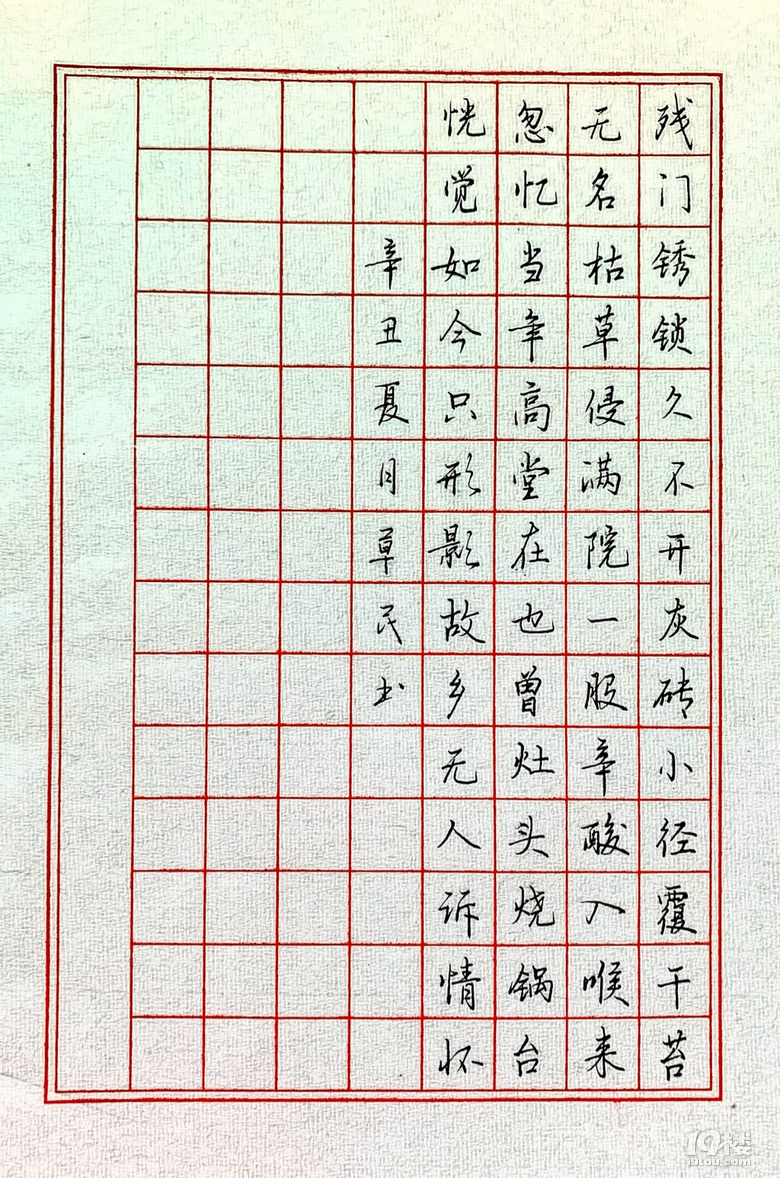 残门锈锁久不开灰砖小径覆干苔
无名枯草侵满院一股辛酸入喉来
忽忆当年高堂在也曾灶头烧锅台
恍觉如今只形影故乡无人诉情怀
辛丑夏月草民书
19楼
19lou.com